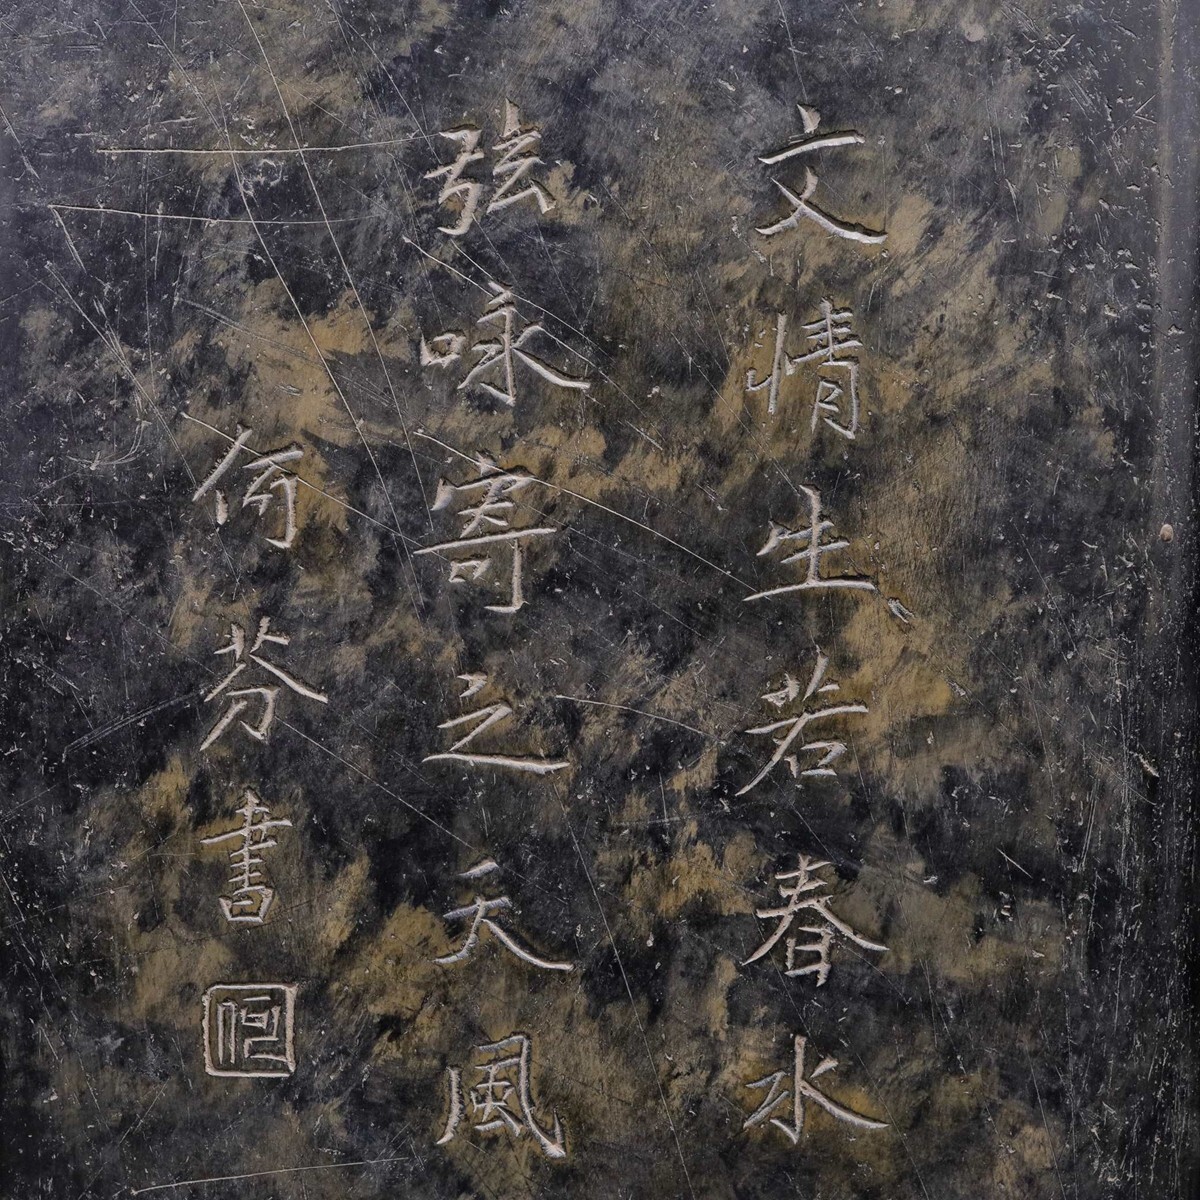 文情生若春水
弦咏寄之天風
何芬書